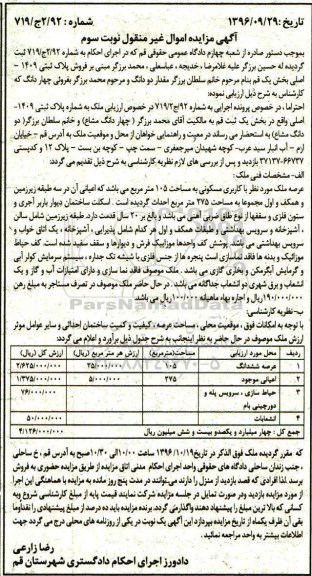 تاریخ: ۱۳۹۶/۰۹/۲۹
شماره: ۲/۹۲ج/۷۱۹
آگهی مزایده اموال غیر منقول نوبت سوم
بموجب دستور صادره از شعبه چهارم دادگاه عمومی حقوقی قم که در اجرای احکام به شماره ۲/۹۲ج/۷۱۹ ثبت
گردیده له حسین برزگر علیه غلامرضا، خدیجه، عباسعلی، محمد برزگر مبنی بر فروش پلاک ثبتی ۱۴۰۹ -
اصلی بخش یک قم بنام مرحوم خانم سلطان برزگر مقدار دو دانگ و مرحوم محمد برزگر بفروثی چهار دانگ که
کارشناس به شرح ذیل ارزیابی نموده:
احتراما، در خصوص پرونده اجرایی به شماره ۲/۹۲ج/۷۱۹ در خصوص ارزیابی ملک به شماره پلاک ثبتی ۱۴۰۹-
اصلی واقع در بخش یک ثبت قم به مالکیت آقای محمد برزگر (چهار دانگ مشاع) و خانم سلطان برزگر( دو
دانگ مشاع) به استحضار می رساند در معیت و راهنمایی خواهان از محل و موقعیت ملک به آدرس قم - خیابان
ارم - آب انبار سید عرب- کوچه شهیدان میرجعفری - سمت چپ - کوچه بن بست - پلاک ۱۲ و کدپستی
۳۷۱۳۷-۶۶۷۳۷ بازدید و پس از بررسی های لازم نظریه کارشناسی به شرح ذیل تقدیم می گردد:
الف- مشخصات فنی ملک:
عرصه ملک مورد نظر با کاربری مسکونی به مساحت ۱۰۵ متر مربع می باشد که اعیانی آن در سه طبقه زیرزمین
و همکف و اول مجموعا به مساحت ۲۷۵ متر مربع احداث گردیده است. اسکلت ساختمان دیوار باربر آجری و
ستون فلزی و سقفها از نوع طاق ضربی آجری می باشد و بالغ بر ۲۰ سال قدمت دارد. طبقه زیرزمین شامل سالن
، آشپزخانه و سرویس بهداشتی و طبقات همکف و اول هر کدام شامل پذیرایی، آشپزخانه، یک اتاق خواب و
سرویس بهداشتی می باشد. پوشش کف واحدها موزاییک فرش و دیوارها و سقف سفید شده است. کف حیاط
موزاییک و بدنه ها فاقد نماسازی است پنجره ها از جنس فلزی با شیشه تک جداره، سیستم سرمایش کولر آبی
و گرمایش آبگرمکن و بخاری گازی می باشد. ملک موصوف فاقد نما سازی و دارای امتیازات آب و گاز و یک
انشعاب و برق شهری دو انشعاب جداگانه می باشد. در حال حاضر ملک موصوف در تصرف مستاجر به مبلغ رهن
۱۹۰/۰۰۰/۰۰۰ ریال و اجاره بهاء ماهیانه ۱۰۰/۰۰۰ ریال می باشد.
ب- نظریه کارشناسی:
با توجه به امکانات فوق، موقعیت محلی، مساحت عرصه، کیفیت و کمیت ساختمان احداثی و سایر عوامل موثر
ارزش ملک موصوف در حال حاضر به نظر اینجانب به شرح جدول ذیل برآورد و اعلام می گردد:
ردیف | محل مورد ارزیابی | مساحت(مترمربع) | ارزش هر متر مربع (ریال) | ارزش کل (ریال)
۱ | عرصه ششدانگ | ۱۰۵ | ۲۵/۰۰۰/۰۰۰ | ۲/۶۲۵/۰۰۰/۰۰۰
۲ | اعیانی موجود | ۲۷۵ | ۵/۰۰۰/۰۰۰ | ۱/۳۷۵/۰۰۰/۰۰۰
۳ | حیاط سازی، سرویس پله و دورچینی بام | ۷۶/۰۰۰/۰۰۰
۴ | انشعابات | ۵۰/۰۰۰/۰۰۰
جمع کل: چهار میلیارد و یکصدو بیست و شش میلیون ریال | ۴/۱۲۶/۰۰۰/۰۰۰
که مقرر گردیده ملک فوق الذکر در تاریخ ۱۳۹۶/۱۰/۱۹ ساعت ۱۰/۰۰ الی ۱۰/۳۰ صبح به آدرس قم، خ ساحلی
، جنب زندان ساحلی دادگاه های حقوقی واحد اجرای احکام مدنی اتاق مزایده از طریق مزایده حضوری به فروش
برسد لذا افرادی که قصد بازدید از منزل را دارند می‌توانند در مدت پنج روز مانده به مزایده با هماهنگی این اجرا
از مورد مزایده بازدید ودر صورت تمایل در جلسه مزایده شرکت نمایند قیمت پایه از مبلغ کارشناسی شروع وبه
کسانی که بالا ترین مبلغ را پیشنهاد دهند واگذارمی گردد. برنده مزایده باید ده درصد از مبلغ پیشنهادی را نقداوما
بقی آن ظرف یکماه از تاریخ مزایده بپردازد این آگهی یک نوبت در یکی از روزنامه های محلی درج می گردد جهت
اطلاعات بیشتر به واحد مراجعه نمائید.
رضا زارعی
دادورز اجرای احکام دادگستری شهرستان قم